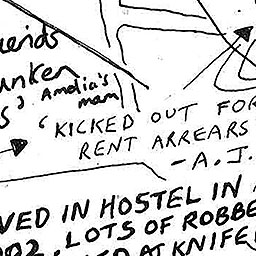 unken
Amelia's
mam
'KICKED OUT FOR
RENT ARREARS
- A.J.
VED IN HOSTEL IN
002. LOTS OF ROBBE
AT KNIFE